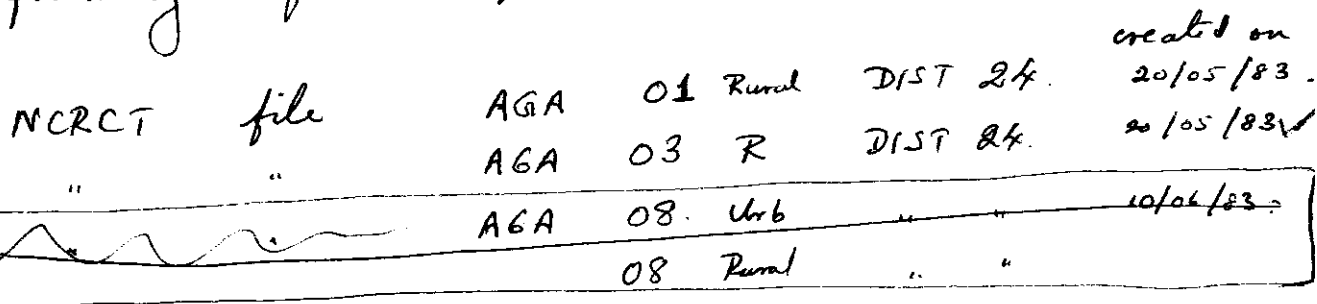 created on
NCRCT file AGA 01 Rural DIST 24. 20/05/83.
" " AGA 03 R DIST 24. 20/05/83✓
" " AGA 08. Urb " " 10/06/83.
08 Rural " "